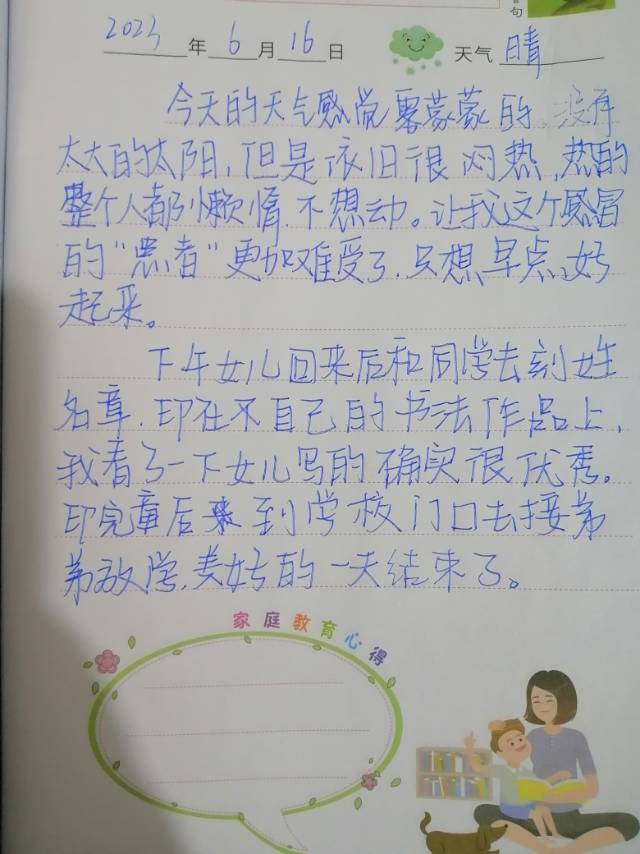 句
2023年6月16日 天气晴
今天的天气感觉雾蒙蒙的,没有
太大的太阳,但是依旧很闷热,热的
整个人都引懒惰,不想动。让我这个感冒
的“患者”更加难受了,只想早点好
起来。
下午女儿回来后和同学去刻姓
名章,印在不自己的书法作品上,
我看了一下女儿写的确实很优秀。
印完章后来到学校门口去接弟
弟放学,美好的一天结束了。
家庭教育心得